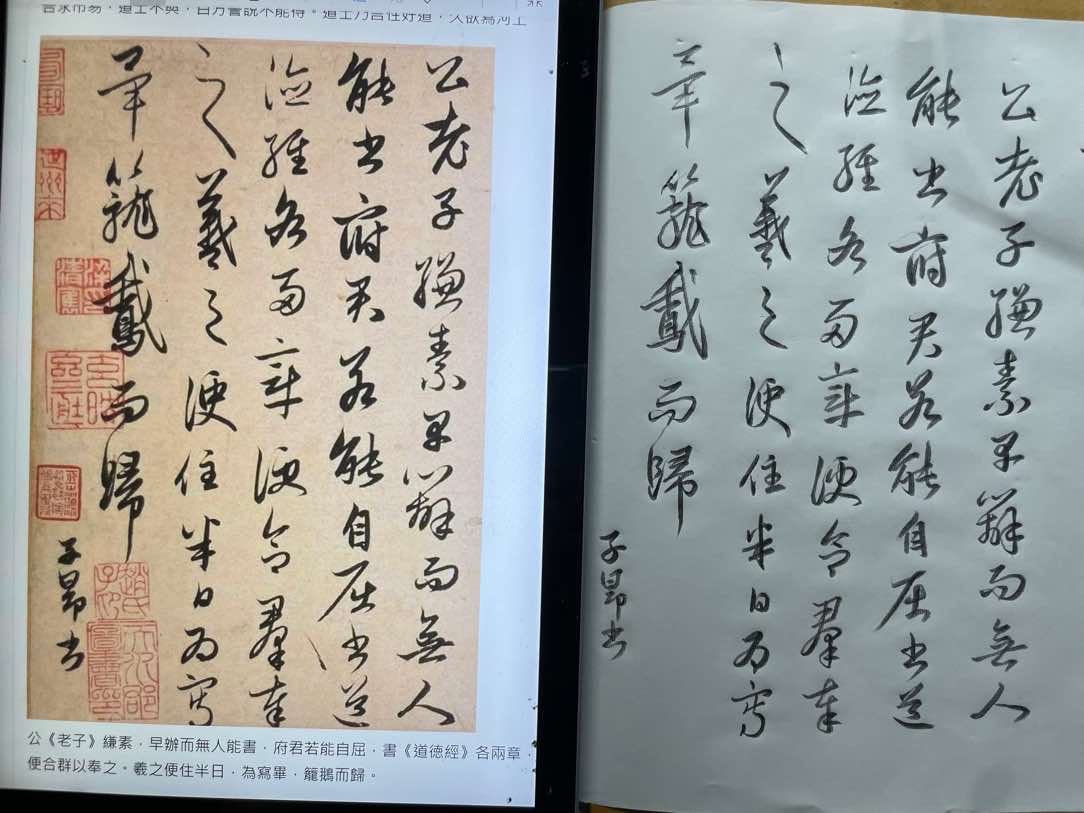 道士不與，百方譬說不能得。道士乃言性好道，久欲為河上
公老子縑素早辦而無人
能書府君若能自屈書道
德經各兩章便合羣奉
之羲之便住半日為寫
畢籠䳘而歸
子昂書
公《老子》縑素，早辦而無人能書，府君若能自屈，書《道德經》各兩章，
便合群以奉之。羲之便住半日，為寫畢，籠鵝而歸。
公老子縑素早辦而無人
能書府君若能自屈書道
德經各兩章便合羣奉
之羲之便住半日為寫
畢籠䳘而歸
子昂書